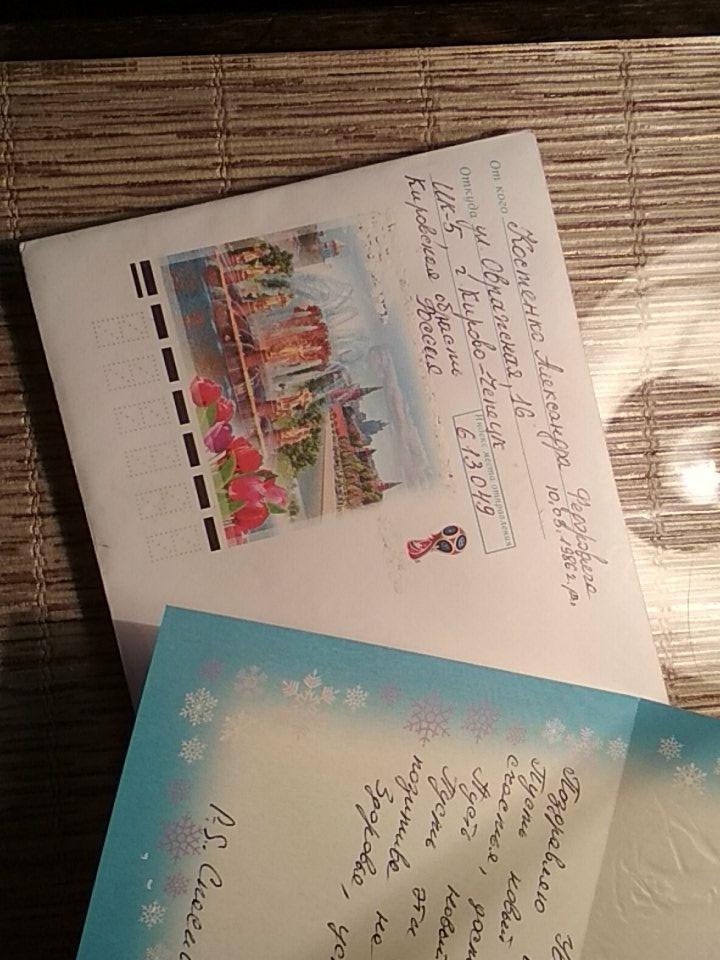 От кого Костенко Александра Федоровича
10.03.1986 г.р.
Откуда ул. Овражская, 16
ИК-5, г. Кирово-Чепецк
Кировская область
Россия
Индекс места отправления
613049
Поздравляю
Пусть новый
счастья,
Пусть новый
Пусть эти
позитива на
Здоровья,
P.S. Спасиб